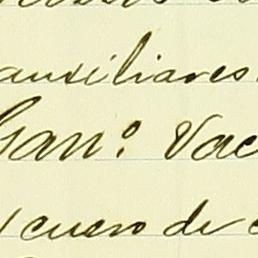 auxiliares.
Gan.º Vac
cuero de